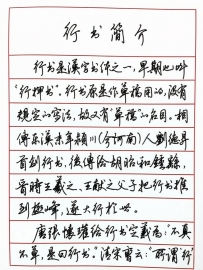 行书简介
行书是汉字书体之一，早期也叫
“行押书”。行书原是作草稿用的，没有
规定的写法，故又有“草稿”的名目。相
传东汉末年颍川（今河南）人刘德昇
首创行书，后传给胡昭和钟繇，
晋时王羲之、王献之父子把行书推
到极峰，遂大行于世。
唐张怀瓘给行书定义为：“不真
不草，是曰行书。”清宋曹云：“所谓行